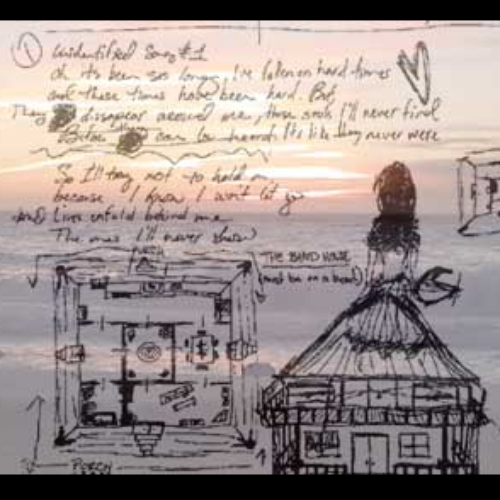 ① Unidentified Song #1
oh its been so long, I've fallen on hard times
and these times have been hard. But
They disappear around me, those souls I'll never find
Before can be heard. Its like they never were
So I'll try not to hold on
because I know I won't let go
And Lives unfold behind me
The ones I'll never show
PORCH
THE BAND HOUSE
(must be on a beach)
PORCH